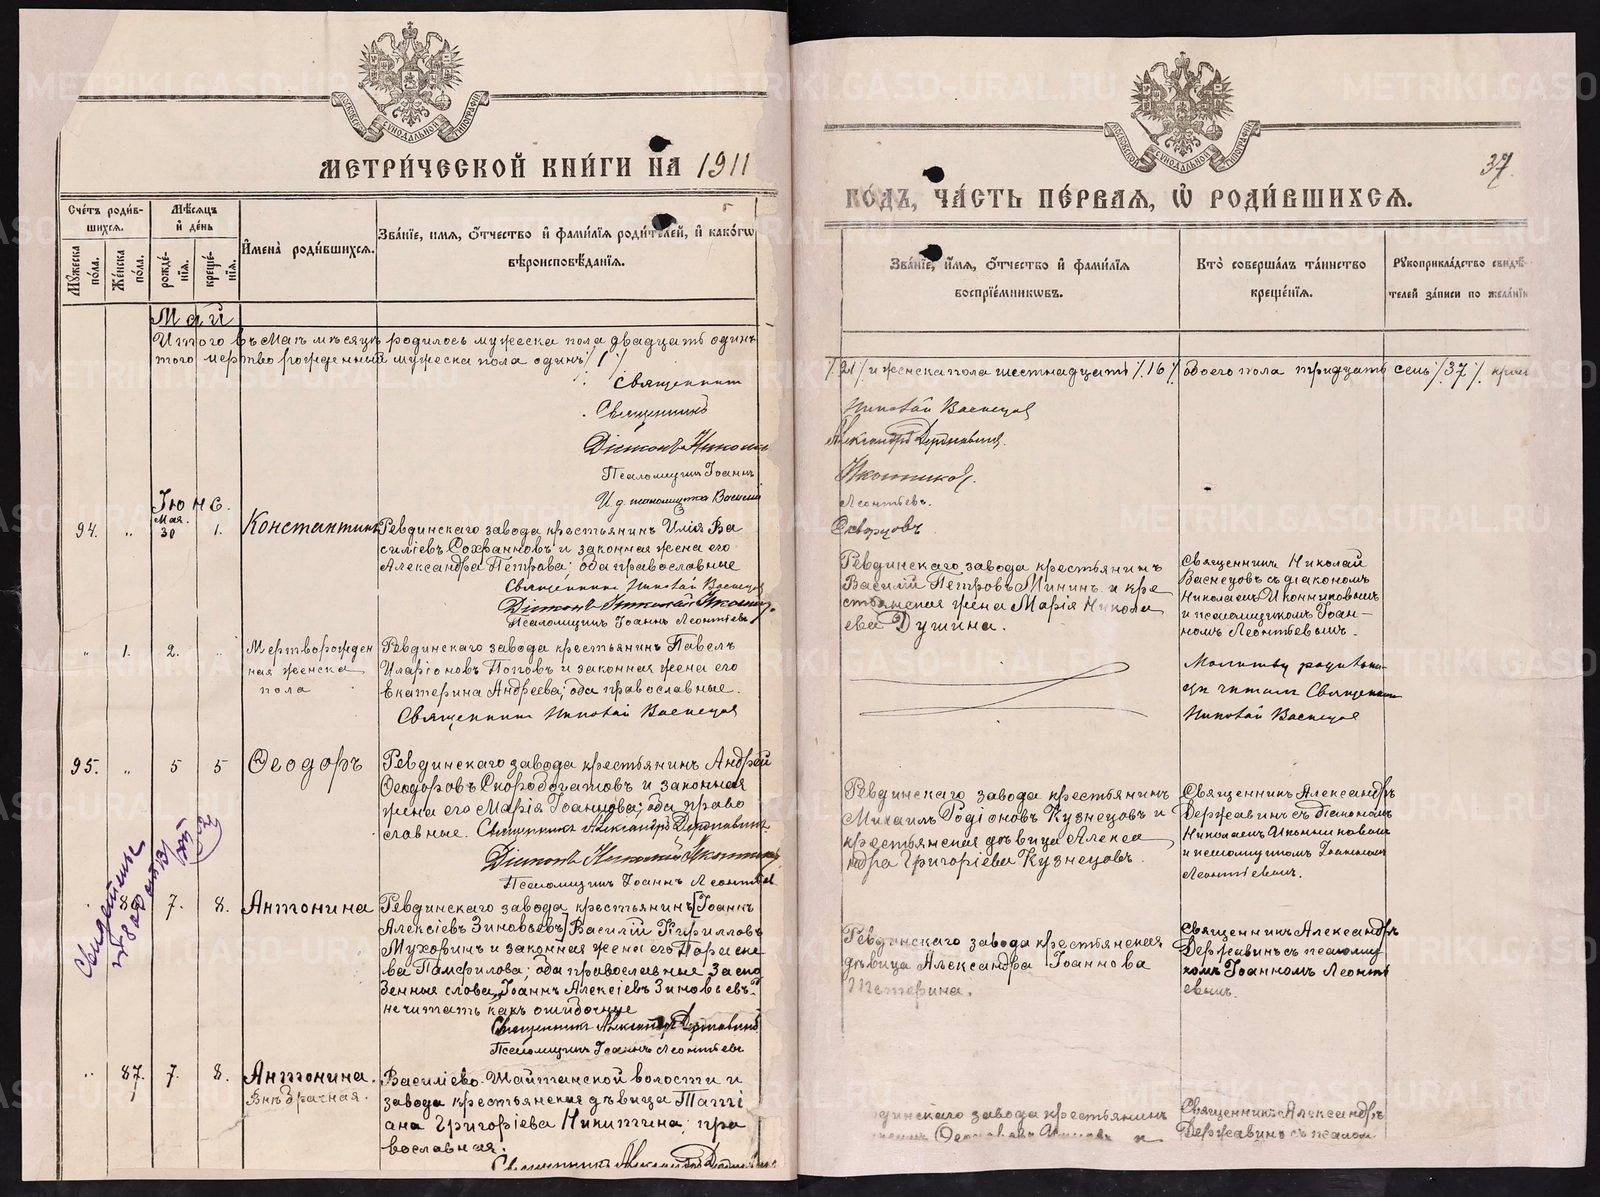 МОСКОВСКОЙ СѴНОДАЛЬНОЙ ТИПОГРАФІИ
МЕТРИ́ЧЕСКОЙ КНИ́ГИ НА 1911
Сче́тъ роди́в-
шихсѧ.
Мѣ́сѧцъ
и҆ де́нь
Мꙋ́жеска
по́ла.
Же́нска
по́ла.
рожде́-
нїѧ.
креще́-
нїѧ.
И҆мена̀ роди́вшихсѧ.
Зва́нїе, и҆мѧ, ѻ҆́тчество и҆ фами́лїѧ роди́телей, и҆ како́гѡ
вѣроисповѣ́данїѧ.
Май
Итого въ маѣ мѣсяцѣ родилось мужеска пола двадцать одинъ
того мертворожденный мужеска пола одинъ /1/
Священникъ
Священникъ
Діаконъ Николай
Псаломщикъ Іоаннъ
И. д. псаломщика Василій
Іюнь.
94. " Мая 30 1. Константинъ
Ревдинскаго завода крестьянинъ Илія Ва
силіевъ Сохранновъ и законная жена его
Александра Петрова; оба православные
Священникъ Николай Васнецов
Діаконъ Николай Иконников
Псаломщикъ Іоаннъ Леонтьевъ
" 1. 2. " Мертворожден
ная женска
пола
Ревдинскаго завода крестьянинъ Павелъ
Иларіоновъ Поповъ и законная жена его
Екатерина Андреева; оба православные.
Священникъ Николай Васнецов
95. " 5 5 Ѳеодоръ
Ревдинскаго завода крестьянинъ Андрей
Ѳеодоровъ Скоробогатовъ и законная
жена его Марія Іоаннова; оба право
славные. Священникъ Александръ Державинъ
Діаконъ Николай Иконников
Псаломщикъ Іоаннъ Леонтьев
7. 8. Антонина
Ревдинскаго завода крестьянинъ [Іоаннъ
Алексіевъ Зиновьевъ] Василій Кирилловъ
Мухоринъ и законная жена его Параске
ва Памфилова; оба православные
Іоаннъ Алексіевъ Зиновьевъ
не читать какъ ошибочные
Священникъ Александръ Державинъ
Псаломщикъ Іоаннъ Леонтьевъ
" 87. 7. 8. Антонина.
Внѣбрачная.
Василіево-Шайтанской волости и
завода крестьянская дѣвица Татті
ана Григоріева Никитина; пра
вославная.
Священникъ Александръ Державинъ
37.
ГО́ДЪ, ЧА́СТЬ ПЕ́РВАѦ, Ѽ РОДИ́ВШИХСѦ.
Зва́нїе, и҆́мѧ, ѻ҆́тчество и҆ фами́лїѧ
воспрїе́мникѡвъ.
Кто̀ соверша́лъ та́инство
креще́нїѧ.
Рꙋкоприкла́дство свидѣ́-
телей за́писи по жела́нїю
/21/ и женска пола шестнадцать /16/ обоего пола тридцать семь /37/.
Николай Васнецов
Александръ Державинъ.
Иконников.
Леонтьевъ.
Скворцовъ
Ревдинскаго завода крестьянинъ
Василій Петровъ Мининъ и кре
стьянская жена Марія Никола
ева Душина.
Священникъ Николай
Васнецовъ съ діакономъ
Николаемъ Иконниковымъ
и псаломщикомъ Іоан-
номъ Леонтьевымъ.
Молитву родитель-
цѣ читалъ Священникъ
Николай Васнецов
Ревдинскаго завода крестьянинъ
Михаилъ Родіоновъ Кузнецовъ и
крестьянская дѣвица Алекса
ндра Григоріева Кузнецовъ.
Священникъ Александръ
Державинъ съ діакономъ
Николаемъ Иконниковым
и псаломщикомъ Іоанномъ
Леонтьевымъ.
Ревдинскаго завода крестьянская
дѣвица Александра Іоаннова
Тетерина.
Священникъ Александръ
Державинъ съ псаломщи
комъ Іоанномъ Леонть
евымъ.
динскаго завода крестьянинъ
Священникъ Александръ
Державинъ съ псалом
METRIKI.GASO-URAL.RU